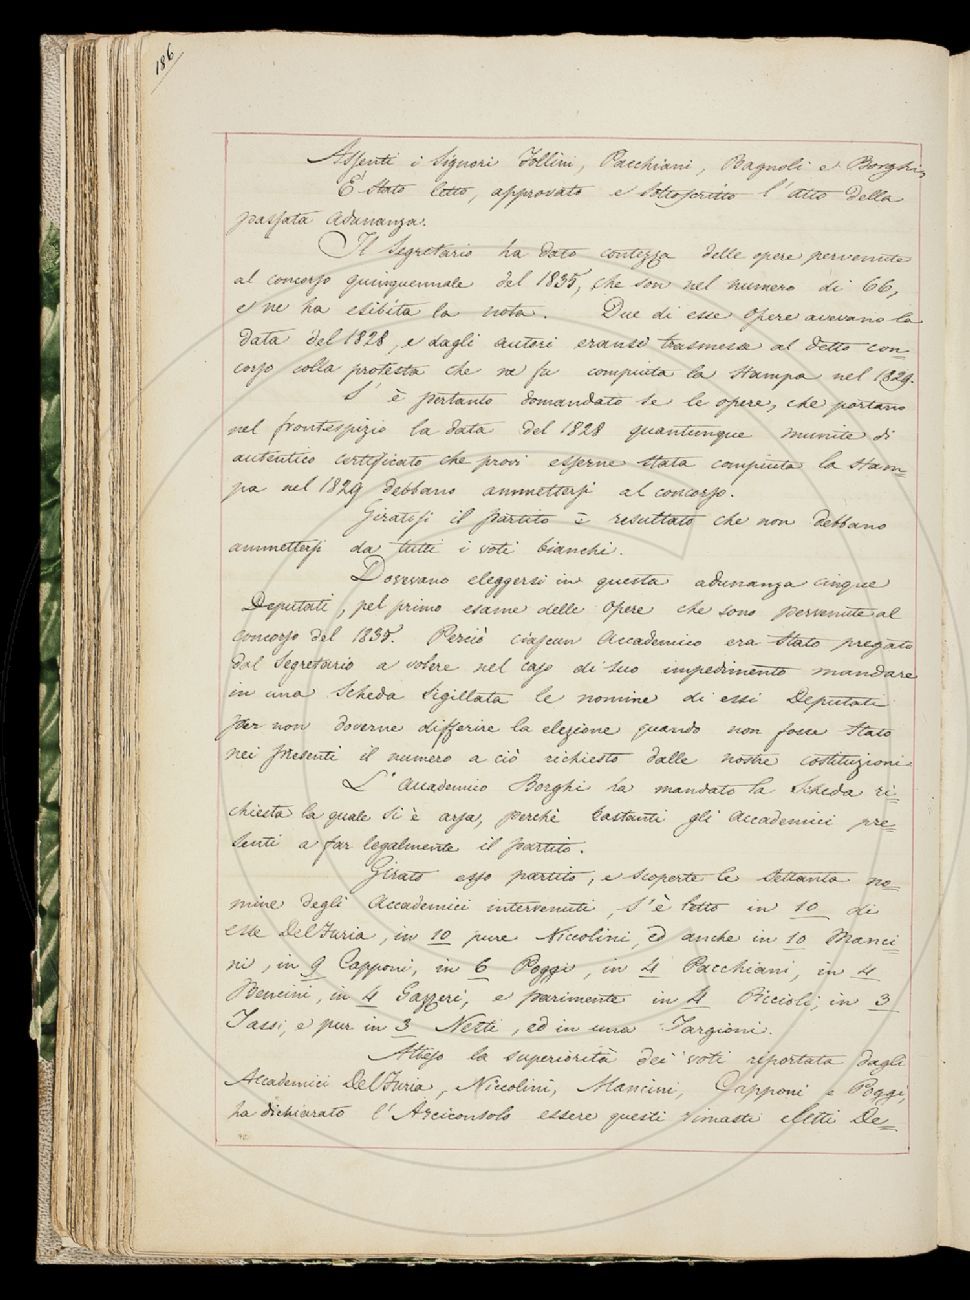 186
Assenti i Signori Follini, Pacchiani, Bagnoli e Borghi,
È stato letto, approvato e sottoscritto l'atto della
passata adunanza.
Il Segretario ha dato contezza delle opere pervenute
al concorso quinquennale del 1835, che son nel numero di 66,
e ne ha esibita la nota. Due di esse Opere avevano la
data del 1828, e dagli autori eransi trasmesse al detto con=
corso colla protesta che ne fu compiuta la stampa nel 1829.
S'è pertanto domandato se le opere, che portano
nel frontespizio la data del 1828 quantunque munite di
autentico certificato che provi esserne stata compiuta la stam=
pa nel 1829 debbano ammettersi al concorso.
Giratosi il partito è resultato che non debbano
ammettersi da tutti i voti bianchi.
Dovevano eleggersi in questa adunanza cinque
Deputati, pel primo esame delle Opere che sono pervenute al
concorso del 1835. Perciò ciascun Accademico era stato pregato
dal Segretario a volere nel caso di suo impedimento mandare
in una Scheda Sigillata le nomine di essi Deputati
per non doverne differire la elezione quando non fosse stato
nei presenti il numero a ciò richiesto dalle nostre costituzioni
L'Accademico Borghi ha mandato la Scheda ri=
chiesta la quale si è arsa, perchè bastanti gli Accademici pre=
senti a far legalmente il partito.
Girato esso partito, e scoperte le settanta no=
mine degli Accademici intervenuti, s'è letto in 10 di
esse Del Furia, in 10 pure Niccolini, ed anche in 10 Manci=
ni, in 9 Capponi, in 6 Poggi, in 4 Pacchiani, in 4
Bencini, in 4 Gazzeri, e parimente in 4 Riccioli, in 3
Tassi, e pur in 3 Nesti, ed in una Targioni.
Atteso la superiorità dei voti riportata dagli
Accademici Del Furia, Niccolini, Mancini, Capponi e Poggi,
ha dichiarato l'Arciconsolo essere questi rimasti eletti De=